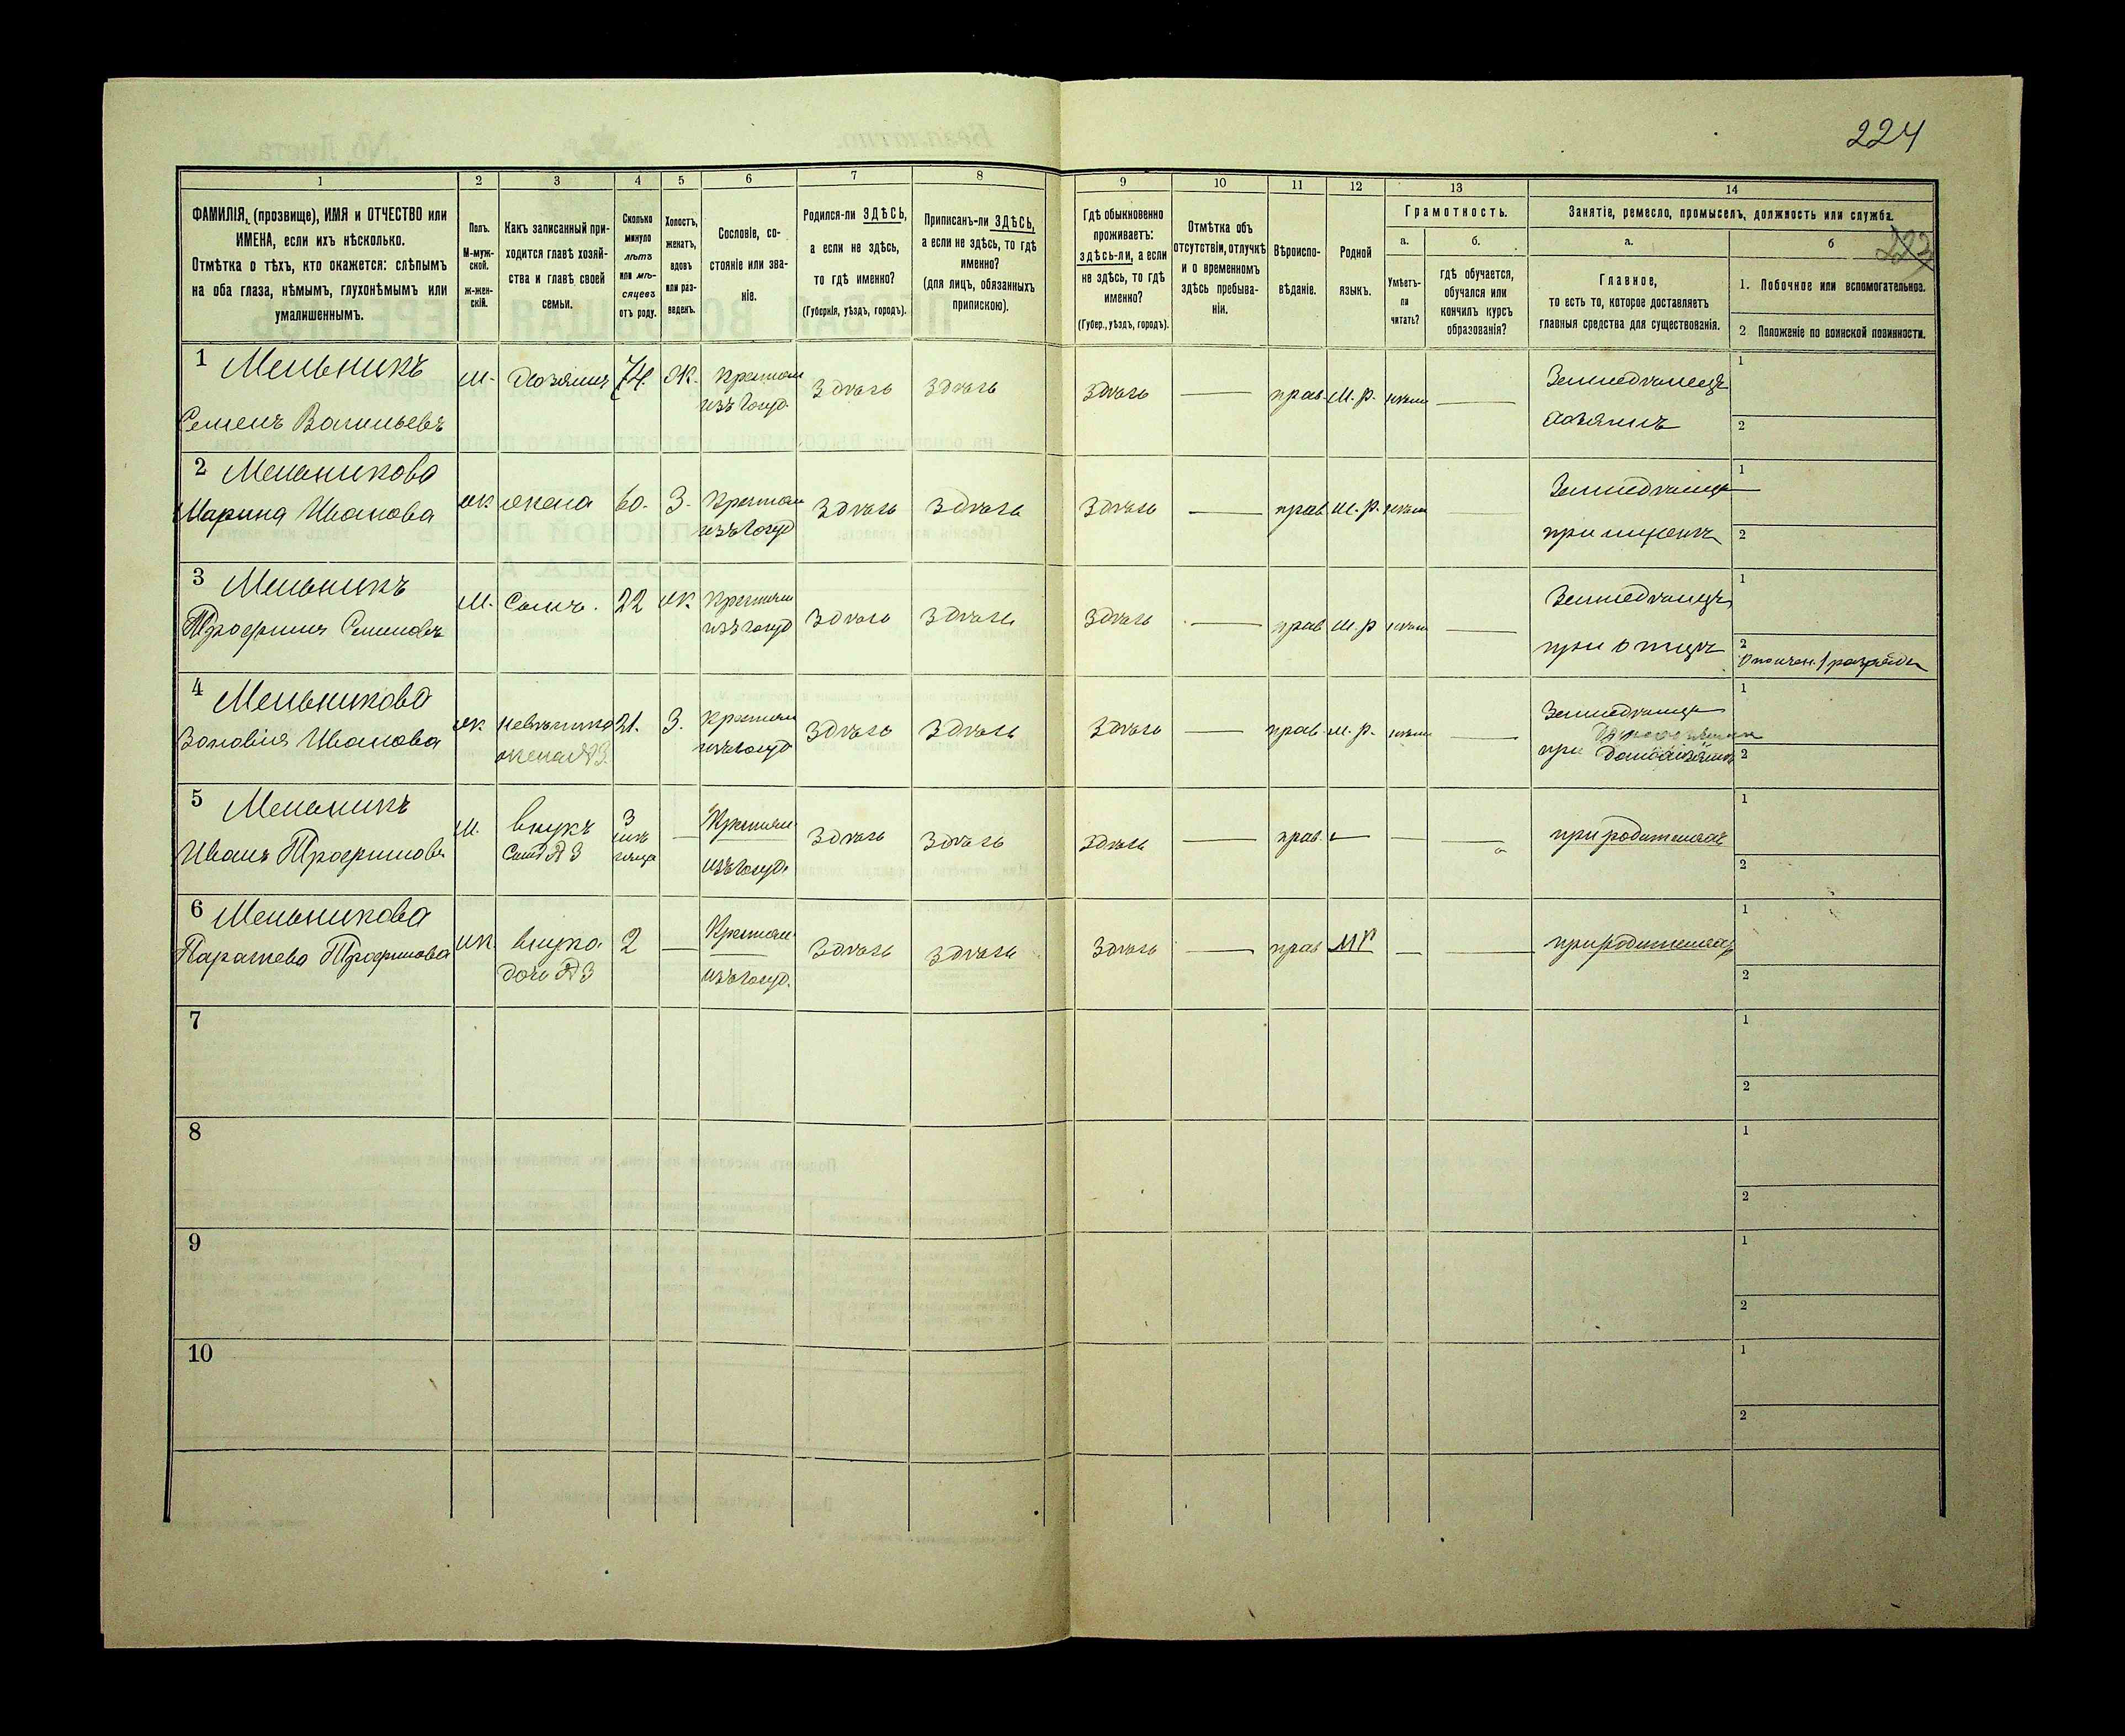 224
1 2 3 4 5 6 7 8 9 10 11 12 13 14
ФАМИЛІЯ, (прозвище), ИМЯ и ОТЧЕСТВО или
ИМЕНА, если ихъ нѣсколько.
Отмѣтка о тѣхъ, кто окажется: слѣпымъ
на оба глаза, нѣмымъ, глухонѣмымъ или
умалишеннымъ.
Полъ.
М-муж-
ской.
ж-жен-
скій.
Какъ записанный при-
ходится главѣ хозяй-
ства и главѣ своей
семьи.
Сколько
минуло
лѣтъ
или мѣ-
сяцевъ
отъ роду.
Холостъ,
женатъ,
вдовъ
или раз-
веденъ.
Сословіе, со-
стояніе или зва-
ніе.
Родился-ли ЗДѢСЬ,
а если не здѣсь,
то гдѣ именно?
(Губернія, уѣздъ, городъ).
Приписанъ-ли ЗДѢСЬ,
а если не здѣсь, то гдѣ
именно?
(для лицъ, обязанныхъ
припискою).
Гдѣ обыкновенно
проживаетъ:
здѣсь-ли, а если
не здѣсь, то гдѣ
именно?
(Губер., уѣздъ, городъ).
Отмѣтка объ
отсутствіи, отлучкѣ
и о временномъ
здѣсь пребыва-
ніи.
Вѣроиспо-
вѣданіе.
Родной
языкъ.
Грамотность.
а.
Умѣетъ-
ли
читать?
б.
гдѣ обучается,
обучался или
кончилъ курсъ
образованія?
Занятіе, ремесло, промыселъ, должность или служба.
а.
Главное,
то есть то, которое доставляетъ
главныя средства для существованія.
б
1. Побочное или вспомогательное.
2 Положеніе по воинской повинности.
1 Мельникъ
Семенъ Васильевъ
м. Хозяинъ 74. Ж. Крестьян
изъ госуд. здѣсь здѣсь здѣсь — прав. м. р. —
Земледѣлецъ
хозяинъ
1
2
2 Мельникова
Марина Иванова
ж жена 60. З. Крестьян
изъ госуд здѣсь здѣсь здѣсь — прав м. р. —
1
2
3 Мельникъ
Трофимъ Семеновъ
м. Сынъ. 22 ж. Крестьян
изъ госуд здѣсь здѣсь здѣсь — прав м. р —
Земледѣлецъ
при отцѣ
1
2
Ополчен. 1 разряда
4 Мельникова
Зановія Иванова
ж. невѣстка
жена №3. 21. З. Крестьян
изъ госуд здѣсь здѣсь здѣсь — прав. м. р. —
при
1
2
5 Мельникъ
Иванъ Трофимовъ
м. внукъ
Сынъ №3 3 — Крестьян
изъ госуд. здѣсь здѣсь здѣсь — прав. — — —
при родителяхъ
1
2
6 Мельникова
Параскева Трофимова
ж. внука
дочь №3 2 — Крестьян
изъ госуд. здѣсь здѣсь здѣсь — прав МР — —
при родителяхъ
1
2
7
1
2
8
1
2
9
1
2
10
1
2